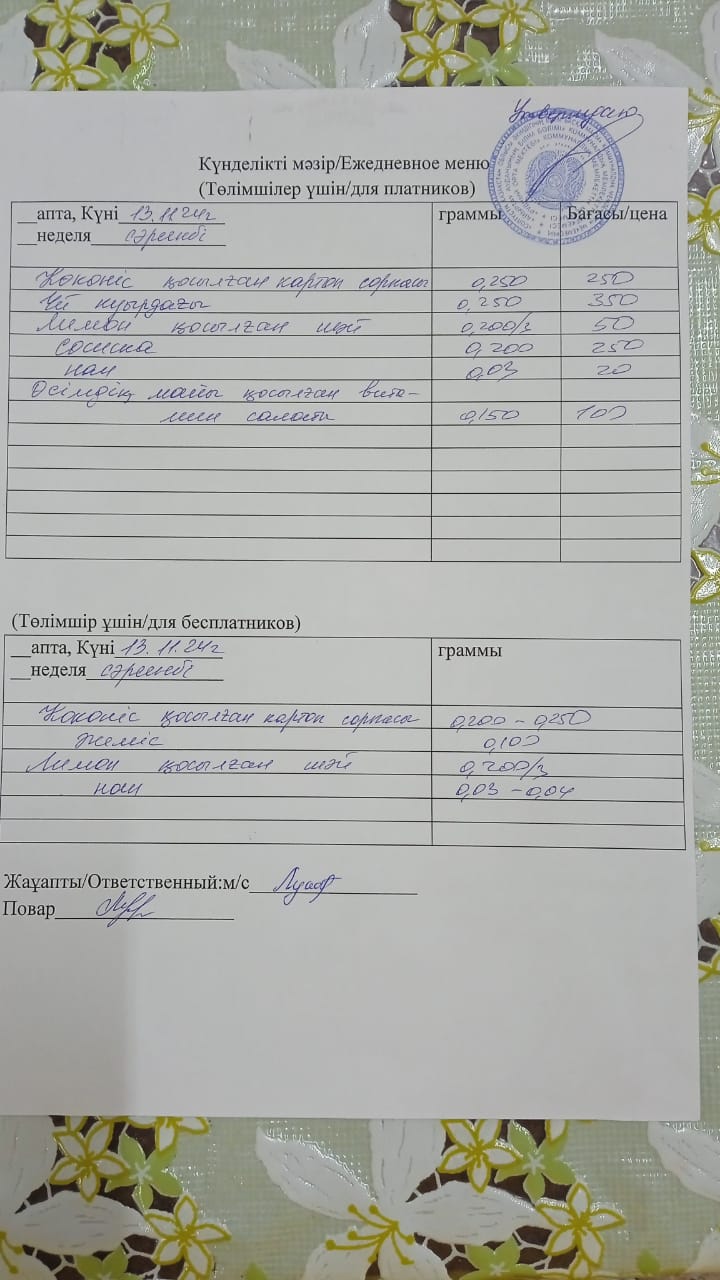 Утверждаю
Күнделікті мәзір/Ежедневное меню
(Төлімшілер үшін/для платников)
__апта, Күні 13.11.24г граммы Бағасы/цена
__неделя сәрсенбі
Көкөніс қосылған картоп сорпасы 0,250 250
Үй қуырдағы 0,250 350
Лимон қосылған шәй 0,200/3 50
сосиска 0,200 250
нан 0,03 20
Өсімдік майы қосылған вита-
мин салаты 0,150 100
(Төлімшір ұшін/для бесплатников)
__апта, Күні 13.11.24г граммы
__неделя сәрсенбі
Көкөніс қосылған картоп сорпасы 0,200 - 0,250
жеміс 0,100
Лимон қосылған шәй 0,200/3
нан 0,03 - 0,04
Жаұапты/Ответственный:м/с
Повар